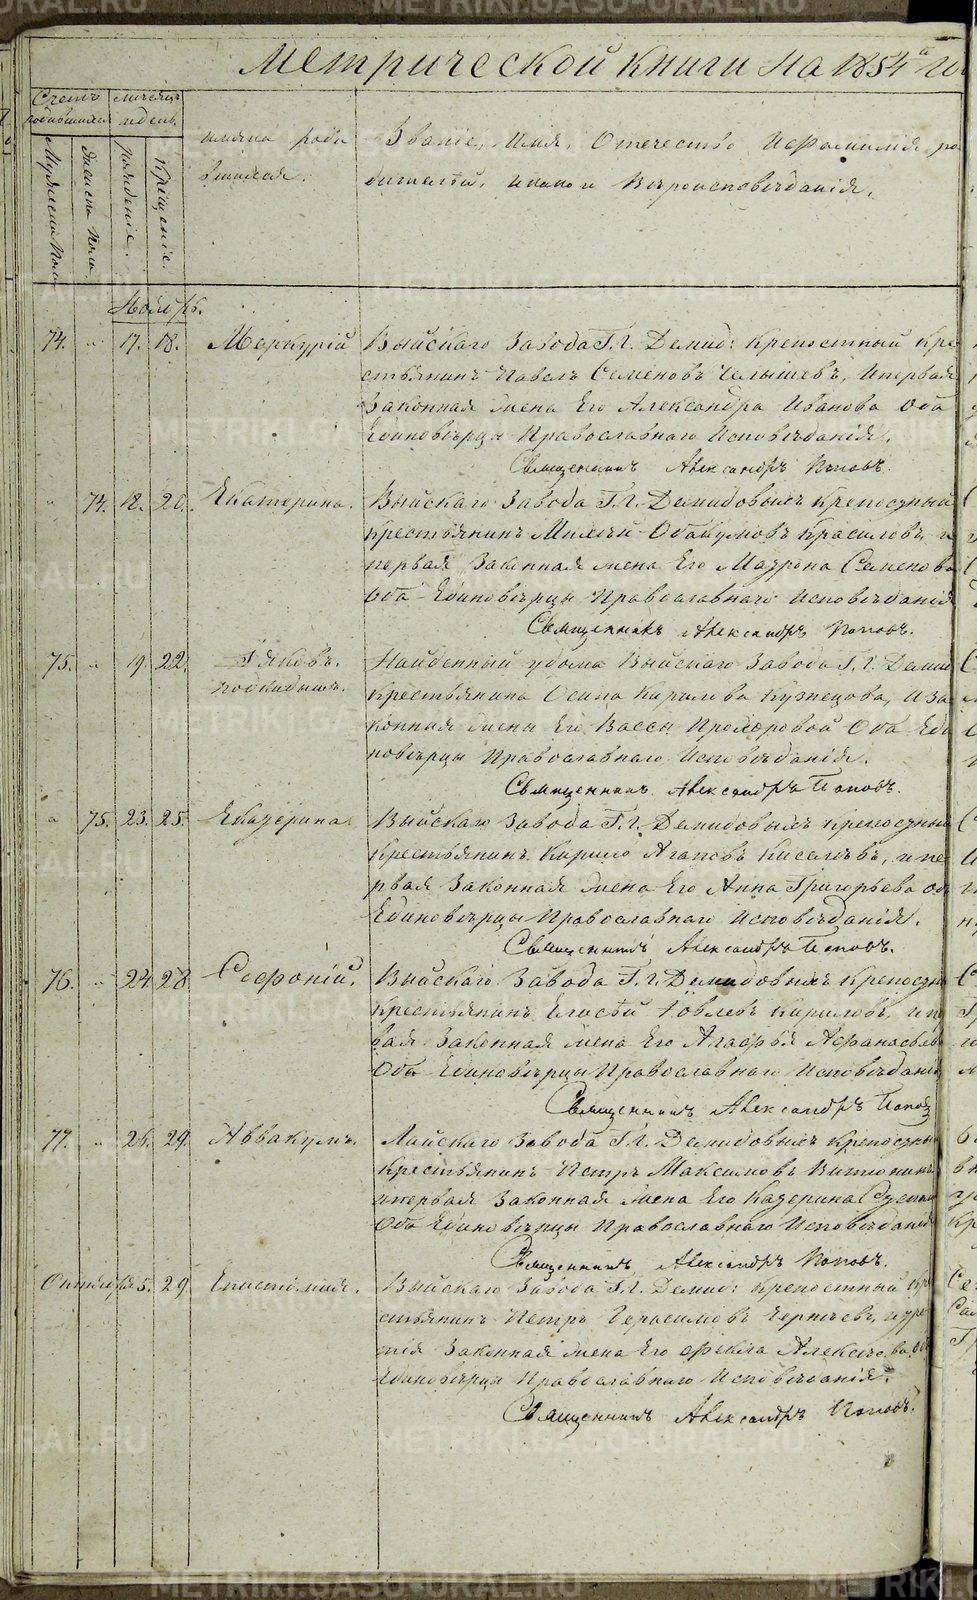 Метрической книги на 1854й го
Счетъ родившихся
Мѣсяцъ и день
Мужеска пола
Женска пола
рожденіе.
крѣщеніе.
имяна роди
вшихся.
Званіе, Имя, Отечество И Фамилія ро
дителей, и какого Вѣроисповѣданія.
Ноября.
74. " 17. 18. Меркурій Выйскаго Завода Г.г. Демид: крепостный Кре
стьянинъ Павелъ Семеновъ Челышевъ, И первая
Законная жена Его Александра Иванова Оба
Единовѣрцы Православнаго Исповѣданія.
Священникъ Александръ Поповъ.
" 74. 18. 20. Екатерина. Выйскаго Завода Г.г. Демидовыхъ крепосный
крестьянинъ Обакумовъ Красиловъ, и
первая Законная жена Его Матрона Семенова
Оба Единовѣрцы Православнаго Исповѣданія
Священникъ Александръ Поповъ.
75. " 19. 22. Іяковъ. Найденный у дома Выйскаго Завода Г.г. Демид
подкидышъ. крестьянина Осипа Кирилова Кузнецова, И за
конная жены Его Вассы Прохоровой Оба Еди
новѣрцы Православнаго Исповѣданія.
Священникъ Александръ Поповъ.
" 75. 23. 25. Екатерина Выйскаго Завода Г.г. Демидовыхъ крепосный
Крестьянинъ Кирило Агаповъ Киселевъ, и пе
рвая Законная жена Его Анна Григорьева об
Единовѣрцы Православнаго Исповѣданія.
Священникъ Александръ Поповъ.
76. " 24. 28. Софоній. Выйскаго Завода Г.г. Демидовыхъ Крепосны
Крестьянинъ Елисѣй Іовлевъ Кириловъ, и пе
вая Законная жена Его Агафья Афанасьева
Оба Единовѣрцы Православнаго Исповѣданія
Священникъ Александръ Попов
77. " 26. 29. Аввакумъ. Лайскаго Завода Г.г. Демидовыхъ крепосны
Крестьянинъ Петръ Максимовъ Витюнинъ
и первая Законная жена Его Катерина
Оба Единовѣрцы Православнаго Исповѣданія
Священникъ Александръ Поповъ.
Октября 5. 29. Епистимия. Выйскаго Завода Г.г. Демид: Крепостный кре
стьянинъ Петръ Герасимовъ и тре
тія Законная жена Его Фекла Алексѣева, об
Единовѣрцы Православнаго Исповѣданія.
Священникъ Александръ Поповъ.
METRIKI.GASO-URAL.RU